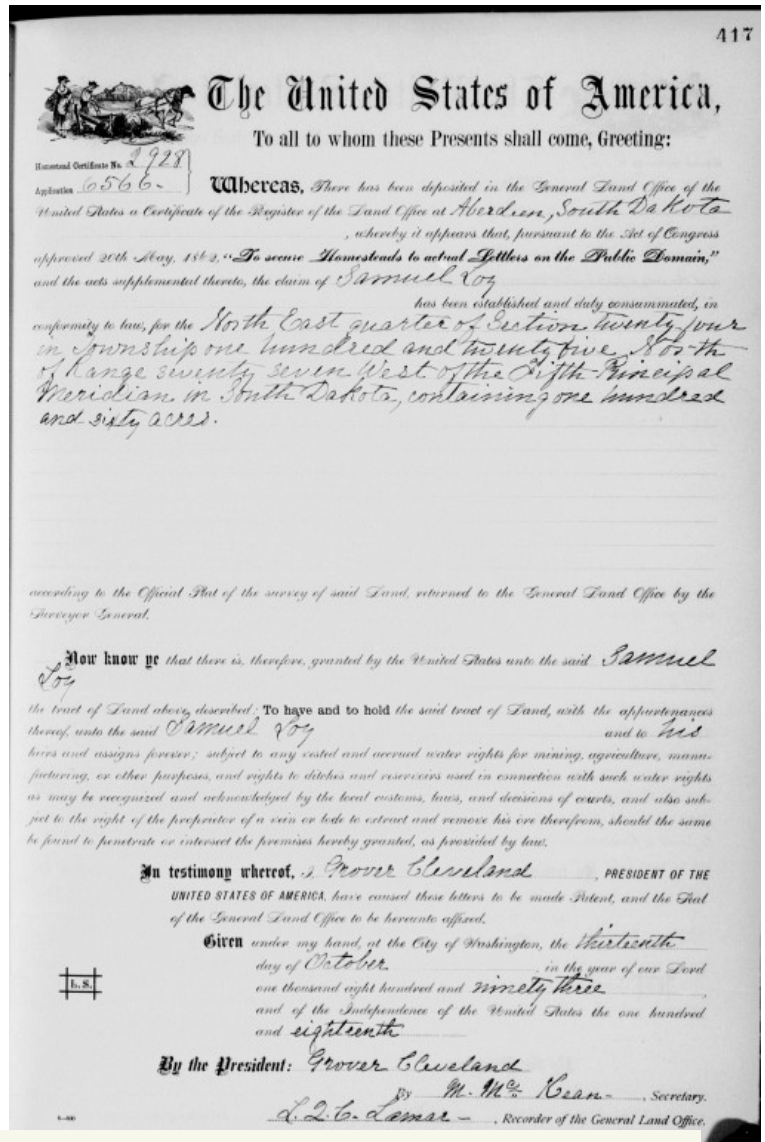 417
The United States of America,
To all to whom these Presents shall come, Greeting:
Homestead Certificate No. 2928
Application 6566.
Whereas, There has been deposited in the General Land Office of the
United States a Certificate of the Register of the Land Office at Aberdeen, South Dakota
, whereby it appears that, pursuant to the Act of Congress
approved 20th May, 1862, "To secure Homesteads to actual Settlers on the Public Domain,"
and the acts supplemental thereto, the claim of Samuel Loy
has been established and duly consummated, in
conformity to law, for the North East quarter of Section twenty four
in Township one hundred and twenty five North
of Range seventy seven West of the Fifth Principal
Meridian in South Dakota, containing one hundred
and sixty acres.
according to the Official Plat of the survey of said Land, returned to the General Land Office by the
Surveyor General.
Now know ye that there is, therefore, granted by the United States unto the said Samuel
Loy
the tract of Land above described: To have and to hold the said tract of Land, with the appurtenances
thereof, unto the said Samuel Loy and to his
heirs and assigns forever; subject to any vested and accrued water rights for mining, agriculture, manu-
facturing, or other purposes, and rights to ditches and reservoirs used in connection with such water rights
as may be recognized and acknowledged by the local customs, laws, and decisions of courts, and also sub-
ject to the right of the proprietor of a vein or lode to extract and remove his ore therefrom, should the same
be found to penetrate or intersect the premises hereby granted, as provided by law.
In testimony whereof, I, Grover Cleveland, PRESIDENT OF THE
UNITED STATES OF AMERICA, have caused these letters to be made Patent, and the Seal
of the General Land Office to be hereunto affixed.
Given under my hand, at the City of Washington, the thirteenth
day of October, in the year of our Lord
one thousand eight hundred and ninety three,
L.S.
and of the Independence of the United States the one hundred
and eighteenth
By the President: Grover Cleveland
By M. McKean, Secretary.
L.Q.C. Lamar, Recorder of the General Land Office.